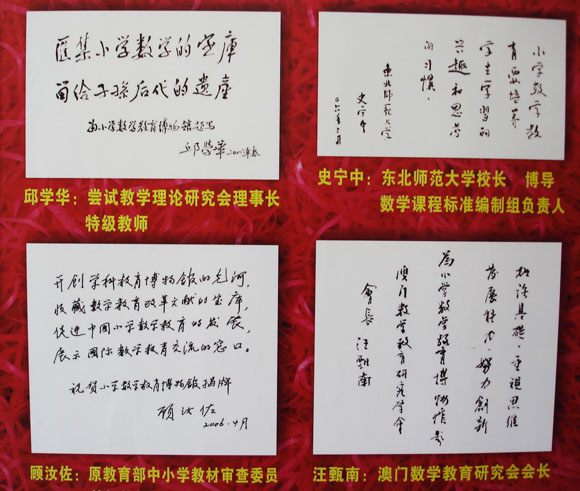 匯集小学数学的宝庫
留给子孫后代的遗産
为小学数学教育博物馆题写
邱学华
邱学华：尝试教学理论研究会理事长
特级教师
小学数学教
育要培养
学生学习的
兴趣和思考
的习惯。
东北师范大学
史宁中
史宁中：东北师范大学校长 博导
数学课程标准编制组负责人
开创学科教育博物馆的先河，
收藏数学教育改革文献的宝库，
促进中国小学数学教育的发展，
展示国际数学教育交流的窗口。
祝贺小学数学教育博物馆揭牌
顾汝佐
2006.4月
顾汝佐：原教育部中小学教材审查委员
加强基礎，重視思維
發展能力，努力創新
為小學數學教育博物館题
澳门数学教育研究学会
會長 汪甄南
汪甄南：澳门数学教育研究会会长